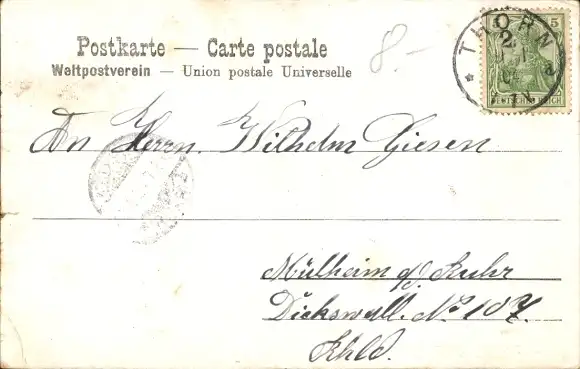 Postkarte — Carte postale
Weltpostverein — Union postale Universelle
8.-
5
THORN
2
1
04
a
DEUTSCHES REICH
An Herrn Wilhelm Giesen
Mülheim a/d. Ruhr
Dickswall. No 107.
Rhld.